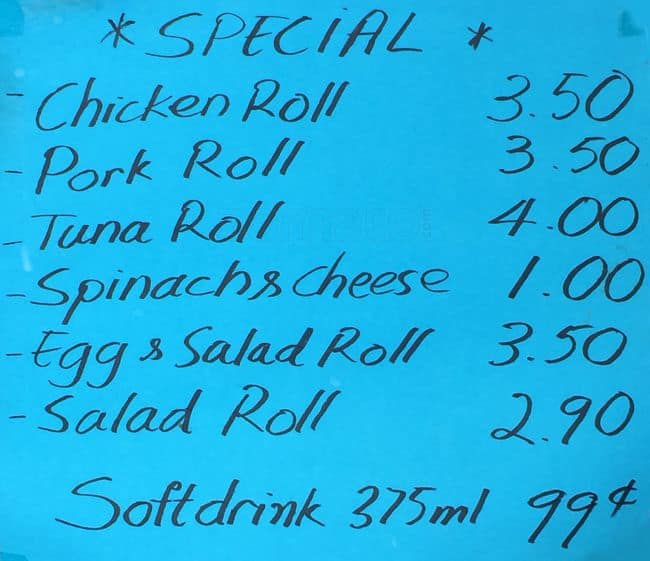 * SPECIAL *
- Chicken Roll 3.50
- Pork Roll 3.50
- Tuna Roll 4.00
- Spinach & Cheese 1.00
- Egg & Salad Roll 3.50
- Salad Roll 2.90
Softdrink 375ml 99¢